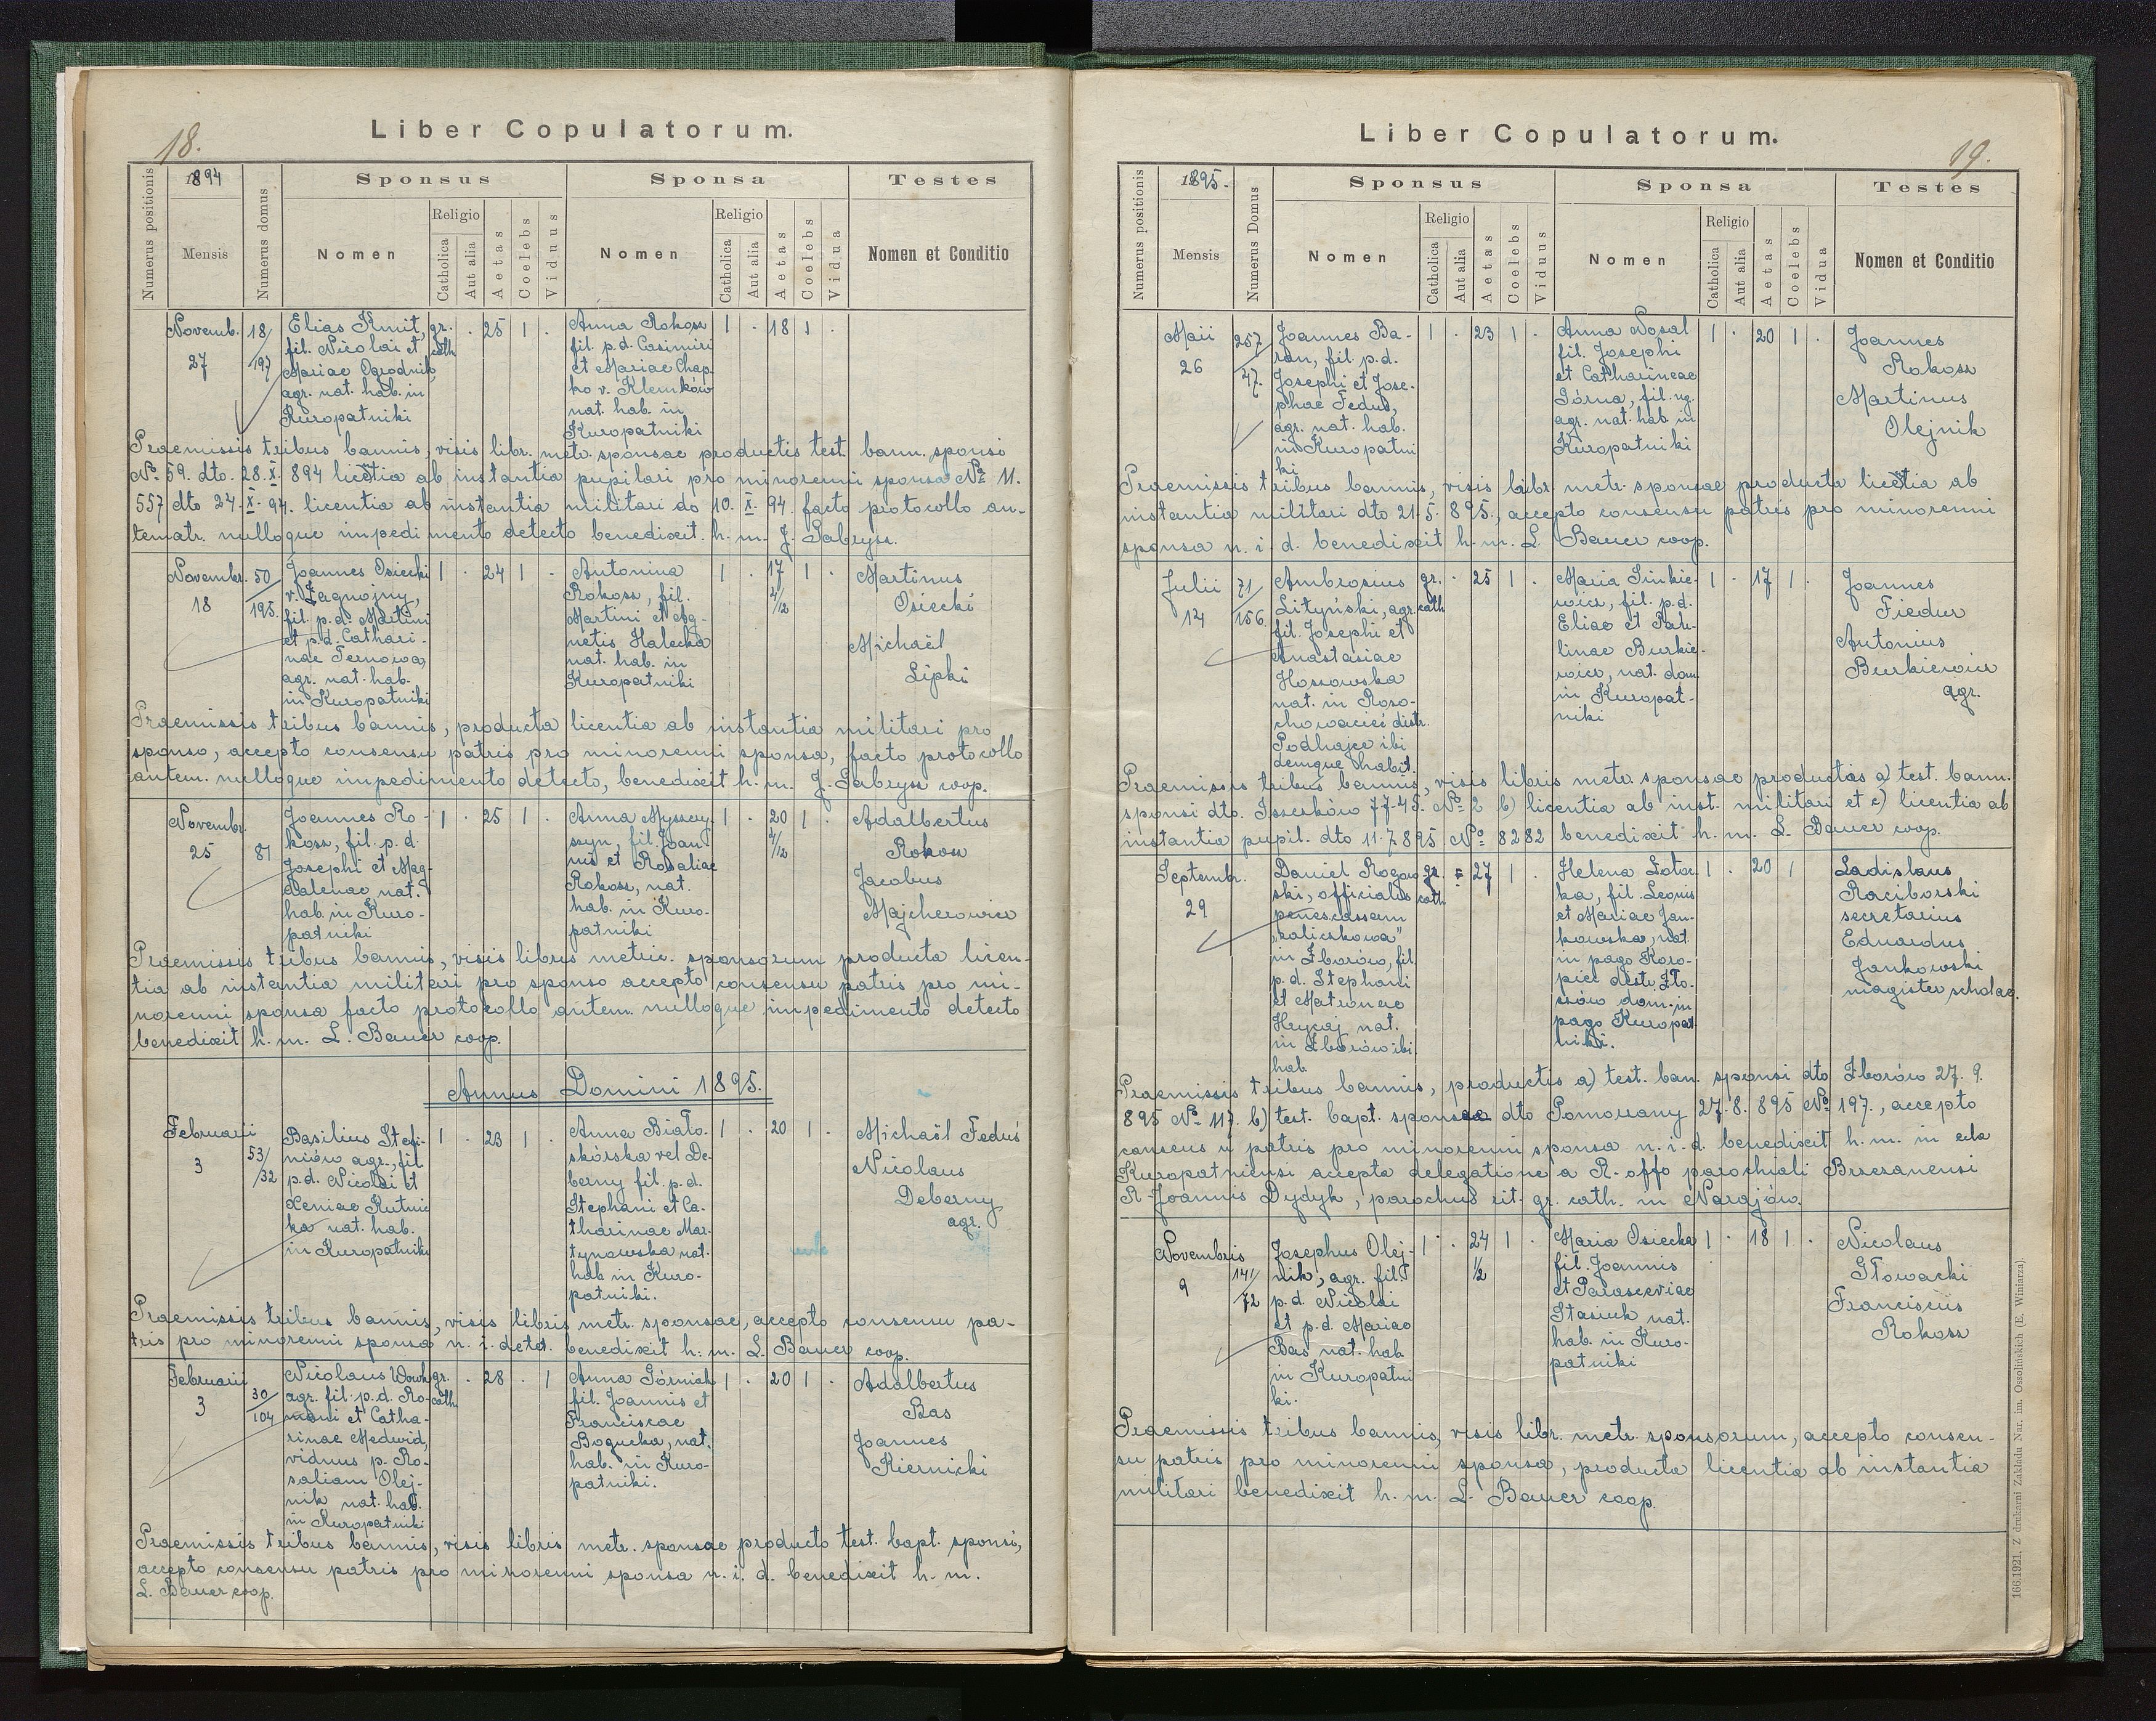 Liber Copulatorum.
18.
Numerus positionis
1894
Mensis
Numerus domus
Sponsus
Nomen
Religio
Catholica
Aut alia
Aetas
Coelebs
Viduus
Sponsa
Nomen
Religio
Catholica
Aut alia
Aetas
Coelebs
Vidua
Testes
Nomen et Conditio
Novemb.
27
18/
197
Elias Kmit,
fil. Nicolai et
Mariae Ogrodnik,
agr. nat. hab. in
Kuropatniki
gr.
cath
. 25 1 .
Anna Rokosz
fil. p.d. Casimiri
et Mariae Chap-
ko v. Klemków
nat. hab. in
Kuropatniki
1 . 18 1 .
Praemissis tribus bannis, visis libr. metr. sponsae productis test. bann. sponsi
No 59. dto. 28.X. 894 licetia ab instantia pupilari pro minorenni sponsa No 11.
557 dto 24.X.94. licentia ab instantia militari do 10.X.94. facto protocollo an-
tematr. nulloque impedimento detecto benedixit. h. m. J. Gabryss.
Novembr.
18
50/
195.
Joannes Osiecki
v. Zagnojny,
fil. p.d. Martini
et p.d. Cathari-
nae Ternowa,
agr. nat. hab.
in Kuropatniki
1 . 24 1 .
Antonina
Rokosz, fil.
Martini et Ag-
netis Halecka
nat. hab. in
Kuropatniki
1 . 17 1 .
4/12
Martinus
Osiecki
Michaël
Lipki
Praemissis tribus bannis, producta licentia ab instantia militari pro
sponso, accepto consensu patris pro minorenni sponsa, facto protocollo
antem. nulloque impedimento detecto, benedixit h. m. J. Gabryss coop.
Novembr.
25
87
Joannes Ro-
kosz, fil. p. d.
Josephi et Mag-
dalenae nat.
hab. in Kuro-
patniki
1 . 25 1 .
Anna Myszczy-
szyn, fil. Joan-
nis et Rosaliae
Rokosz, nat.
hab. in Kuro-
patniki
1 . 20 1 .
4/12
Adalbertus
Rokosz
Jacobus
Majcherowicz
Praemissis tribus bannis, visis libris metric. sponsorum producta licen-
tia ab instantia militari pro sponso accepto consensu patris pro mi-
norenni sponsa facto protocollo antem. nulloque impedimento detecto
benedixit h. m. L. Bauer coop.
Annus Domini 1895.
Februarii
3
53/
/32
Basilius Stefi-
niów agr., fil.
p.d. Nicolai et
Xeniae Rutnic
ka nat. hab.
in Kuropatniki
1 . 23 1 .
Anna Biało-
skórska vel De-
berny fil. p.d.
Stephani et Ca-
tharinae Mar-
tynowska nat.
hab in Kuro-
patniki.
1 . 20 1 .
Michaël Feduś
Nicolaus
Deberny
agr.
Praemissis tribus bannis, visis libris metr. sponsae, accepto consensu pa-
tris pro minorenni sponsa n. i. detct. benedixit h. m. L. Bauer coop.
Februarii
3
30/
104
Nicolaus Wowk
agr. fil. p.d. Ro-
mani et Catha-
rinae Medwid,
viduus p. Ro-
saliam Olej-
nik nat. hab.
in Kuropatniki
gr.
cath
. 28 . 1
Anna Górniak
fil. Joannis et
Franciscae
Bogucka, nat.
hab. in Kuro-
patniki.
1 . 20 1 .
Adalbertus
Bas
Joannes
Kiernicki
Praemissis tribus bannis, visis libris metr. sponsae producto test. bapt. sponsi,
accepto consensu patris pro minorenni sponsa n. i. d. benedixit h. m.
L. Bauer coop.
Liber Copulatorum.
19.
Numerus positionis
1895.
Mensis
Numerus Domus
Sponsus
Nomen
Religio
Catholica
Aut alia
Aetas
Coelebs
Viduus
Sponsa
Nomen
Religio
Catholica
Aut alia
Aetas
Coelebs
Vidua
Testes
Nomen et Conditio
Maii
26
257/
47.
Joannes Ba-
ran, fil. p.d.
Josephi et Jose-
phae Fedus,
agr. nat. hab.
in Kuropatni
ki
1 . 23 1 .
Anna Nosal
fil. Josephi
et Catharineae
Górna, fil. ag.
agr. nat. hab. in
Kuropatniki
1 . 20 1 .
Joannes
Rokosz
Martinus
Olejnik
Praemissis tribus bannis, visis libr. metr. sponsae producta licetia ab
instantia militari dto 21.5.895., accepto consensu patris pro minorenni
sponsa n. i. d. benedixit h. m. L. Bauer coop.
Julii
14
71/
156.
Ambrosius
Lityński, agr.
fil. Josephi et
Anastasiae
Hossowska
nat. in Roso-
chowaciec distr.
Podhajce ibi
demque habit.
gr.
cath
. 25 1 .
Maria Sinkie-
wicz, fil. p.d.
Eliae et Pau-
linae Burkie-
wicz, nat. dom
in Kuropat-
niki
1 . 17 1 .
Joannes
Fiedur
Antonius
Burkiewicz
agr.
Praemissis tribus bannis, visis libris metr. sponsae productis a) test. bann.
sponsi dto. Isserków 7.7.45. No 2 b) licentia ab inst. militari et c) licentia ab
instantia pupil. dto 11.7.895 No 8282 benedixit h. m. L. Bauer coop.
Septembr.
29
Daniel Rogow
ski, officialis
penes cassam
„zaliczkowa”
in Zborów, fil.
p.d. Stephani
et Matronae
Hrycaj nat.
in Zborów ibi
hab
gr.
cath
27 1 .
Helena Lotoc
ka, fil. Leonis
et Mariae Jan-
kowska, nat.
in pago Koro-
piec distr. Zło-
czów dom. in
pago Kuropat
niki.
1 . 20 1
Ladislaus
Raciborski
secretarius
Eduardus
Jankowski
magister scholae.
Praemissis tribus bannis, productis a) test. ban. sponsi dto Zborów 27. 9.
895 No 117. b) test. bapt. sponsae dto Pomorzany 27.8.895 No 197., accepto
consensu patris pro minorenni sponsa n. i. d. benedixit h. m. in ecla
Kuropatniensi accepta delegatione a R. offo parochiali Brzezanensi
R. Joannis Dydyk, parochus rit. gr. cath. in Narajów.
Novembris
9
141/
/72
Josephus Olej-
nik, agr. fil.
p.d. Nicolai
et p.d. Mariae
Bas nat. hab
in Kuropatni
ki.
1 . 24 1 .
1/2
Maria Osiecka
fil. Joannis
et Parasceviae
Stasiuk nat.
hab. in Kuro-
patniki
1 . 18 1 .
Nicolaus
Głowacki
Franciscus
Rokosz
Praemissis tribus bannis, visis libr. metr. sponsorum, accepto consen-
su patris pro minorenni sponsa, producta licentia ab instantia
militari benedixit h. m. L. Bauer coop.
166.1921. Z drukarni Zakładu Nar. im. Ossolińskich (E. Winiarza)